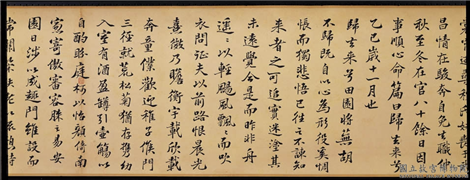 昌情在駿奔自免去職仲
秋至冬在官八十餘日因
事順心命篇曰歸去來兮
乙巳歲十一月也
歸去來兮田園將蕪胡
不歸既自以心為形役奚惆
悵而獨悲悟已往之不諫知
來者之可追實迷途其
未遠覺今是而昨非舟
遙々以輕颺風飄々而吹
衣問征夫以前路恨晨光
熹微乃瞻衡宇載欣載
奔童僕歡迎稚子候門
三徑就荒松菊猶存攜幼
入室有酒盈罇引壺觴以
自酌眄庭柯以怡顏倚南
窻寄傲審容膝之易安
園日涉以成趣門雖設而
常關策扶老以流憩時
國立故宮博物院